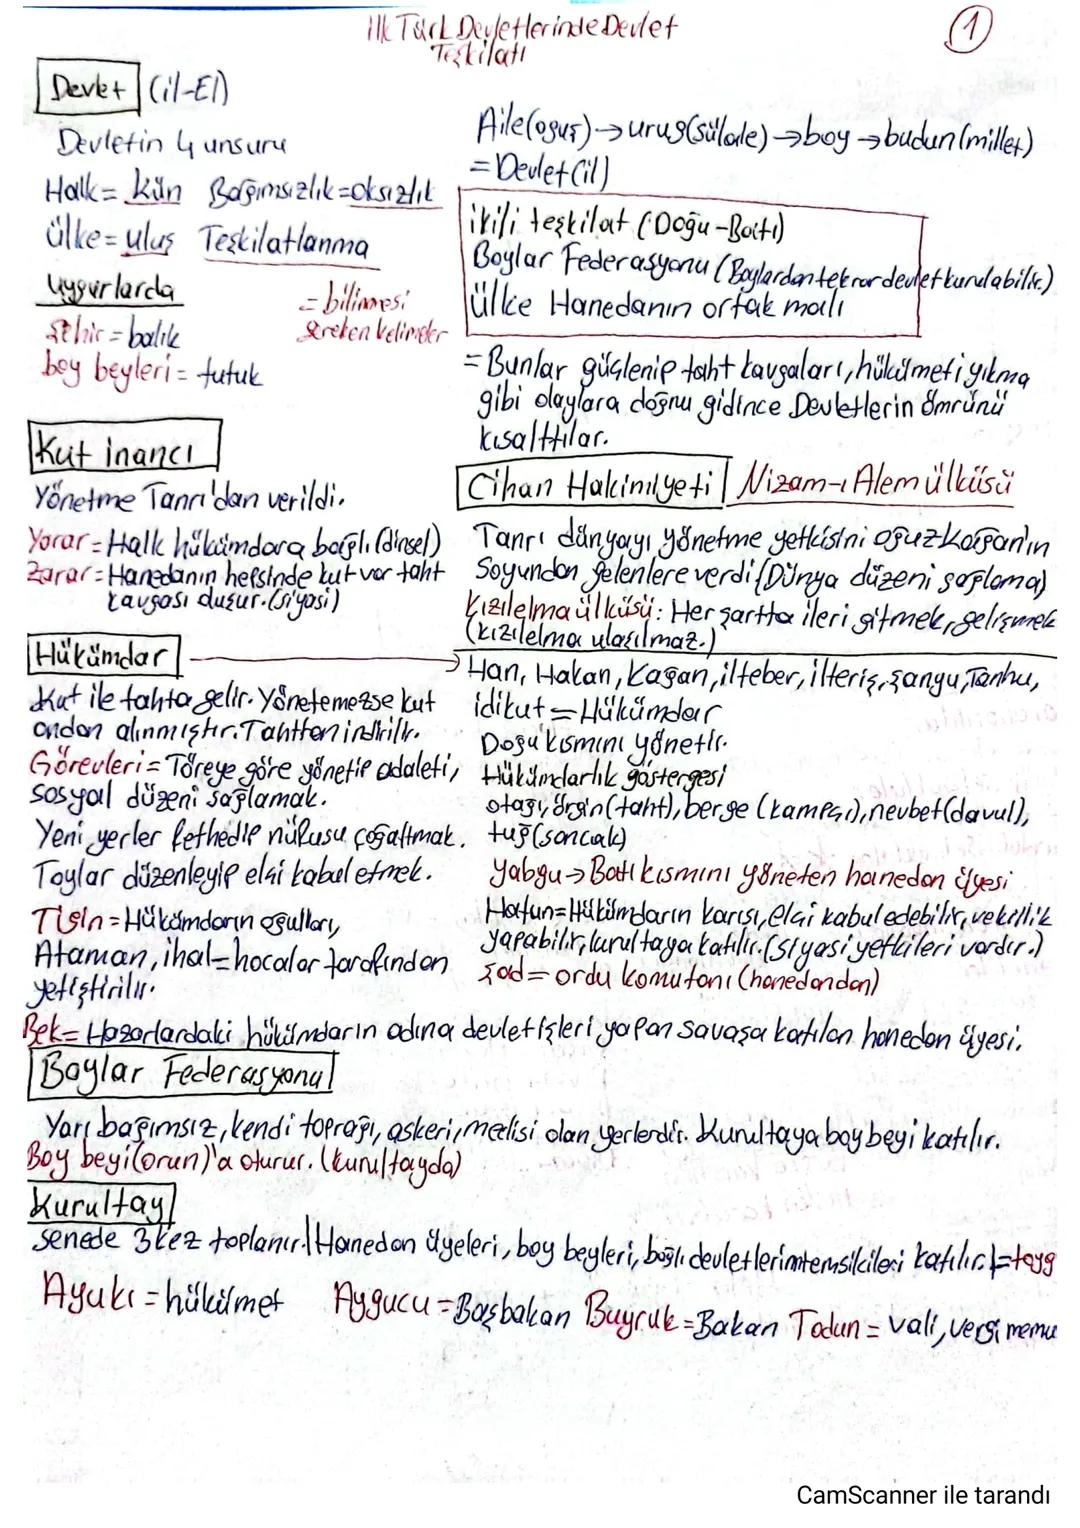 İlk Türk Devletlerinde Devlet
Teşkilatı
1
Devlet (il-El)
Devletin 4 unsuru
Halk = kün Bağımsızlık = oksızlık
ülke = uluş Teşkilatlanma
Uygurlarda
= bilinmesi
gereken kelimeler
şehir = balık
boy beyleri = tutuk
Aile(oguş)→urug(sülale)→boy→budun(millet)
=Devlet(il)
ikili teşkilat (Doğu-Batı)
Boylar Federasyonu (Boylardan tekrar devlet kurulabilir.)
ülke Hanedanın ortak malı
=Bunlar güçlenip taht kavgaları, hükümeti yıkma
gibi olaylara doğru gidince Devletlerin ömrünü
kısalttılar.
Kut inancı
Yönetme Tanrı'dan verildi.
Yarar = Halk hükümdara bağlı (dinsel)
Zarar = Hanedanın hepsinde kut var taht
kavgası duşur.(siyasi)
Cihan Hakimiyeti Nizam-ı Alem ülküsü
Tanrı dünyayı yönetme yetkisini oğuzkağan'ın
Soyundan gelenlere verdi (Dünya düzeni sağlama)
Kızılelma ülküsü: Her şartta ileri gitmek, gelişmek
(kızılelma ulaşılmaz.)
Hükümdar
Kut ile tahta gelir. Yönetemezse kut
ondan alınmıştır. Tahttan indirilir.
Görevleri = Töreye göre yönetip adaleti,
sosyal düzeni sağlamak.
Yeni yerler fethedip nüfusu çoğaltmak.
Toylar düzenleyip elçi kabul etmek.
Tigin = Hükümdarın oğulları,
Ataman, ihal = hocalar tarafından
yetiştirilir.
Han, Hakan, Kağan, ilteber, ilteriş, şangu, Tanhu,
idikut = Hükümdar
Doğu kısmını yönetir.
Hükümdarlık göstergesi
otağı, örgin (taht), berge (kamçı), nevbet (davul),
tuğ (sancak)
Yabgu→Batı kısmını yöneten hanedan üyesi
Hatun = Hükümdarın karısı, elçi kabul edebilir, vekillik
yapabilir, kurultaya katılır. (siyasi yetkileri vardır.)
şad = ordu komutanı (hanedandan)
Bek = Hazarlardaki hükümdarın adına devlet işleri yapan savaşa katılan hanedan üyesi.
Boylar Federasyonu
Yarı bağımsız, kendi toprağı, askeri, meclisi olan yerlerdir. Kurultaya boy beyi katılır.
Boy beyi (orun)'a oturur. (kurultayda)
Kurultay
senede 3 kez toplanır. Hanedan üyeleri, boy beyleri, bağlı devletlerin temsilcileri katılır. = toyg
Ayukı = hükümet Aygucu = Başbakan Buyruk = Bakan Todun = vali, vergi memu
CamScanner ile tarandı